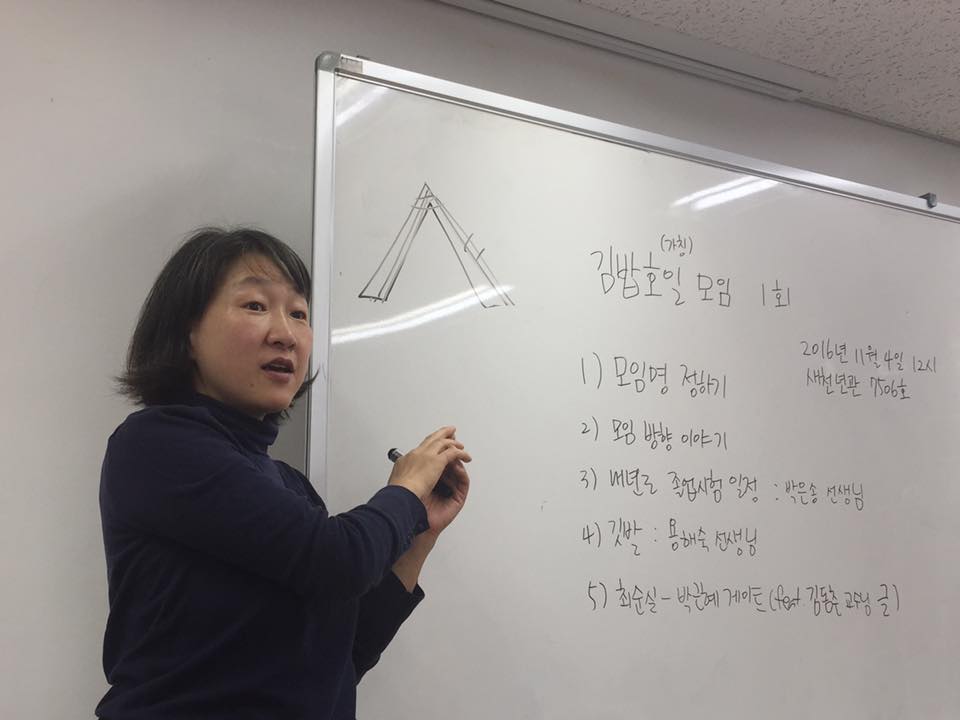 (가칭)
김밥호일 모임 1회
2016년 11월 4일 12시
새천년관 7506호
1) 모임명 정하기
2) 모임 방향 이야기
3) 내년도 졸업시험 일정 : 박은송 선생님
4) 깃발 : 용해숙 선생님
5) 최순실 - 박근혜 게이트 (feat. 김동춘 교수님 글)